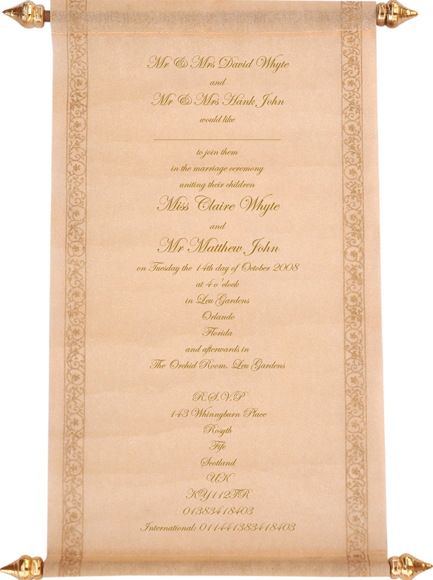 Mr & Mrs David Whyte
and
Mr & Mrs Hank John
would like
to join them
in the marriage ceremony
uniting their children
Miss Claire Whyte
and
Mr Matthew John
on Tuesday the 14th day of October 2008
at 4 o'clock
in Leu Gardens
Orlando
Florida
and afterwards in
The Orchid Room, Leu Gardens
R.S.V.P
143 Whinnyburn Place
Rosyth
Fife
Scotland
UK
KY112TR
01383418403
International: 011441383418403